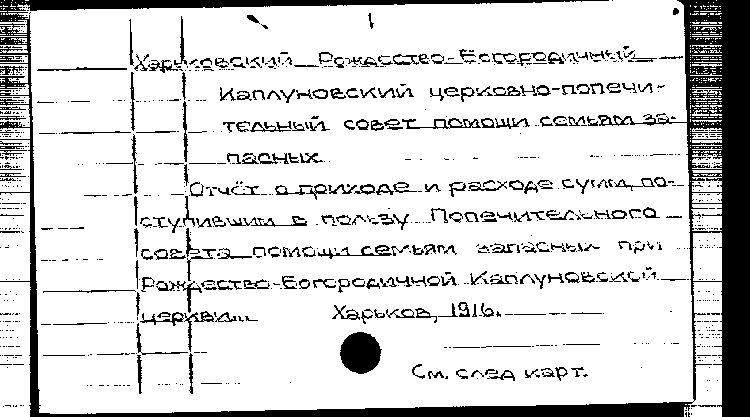 Харьковский Рождество-Богородичный
Каплуновский церковно-попечи-
тельный совет помощи семьям за-
пасных.
Отчёт о приходе и расходе сумм, по-
ступившим в пользу Попечительного
совета помощи семьям запасных при
Рождество-Богородичной Каплуновской
церкви... Харьков, 1916.
См. след карт.